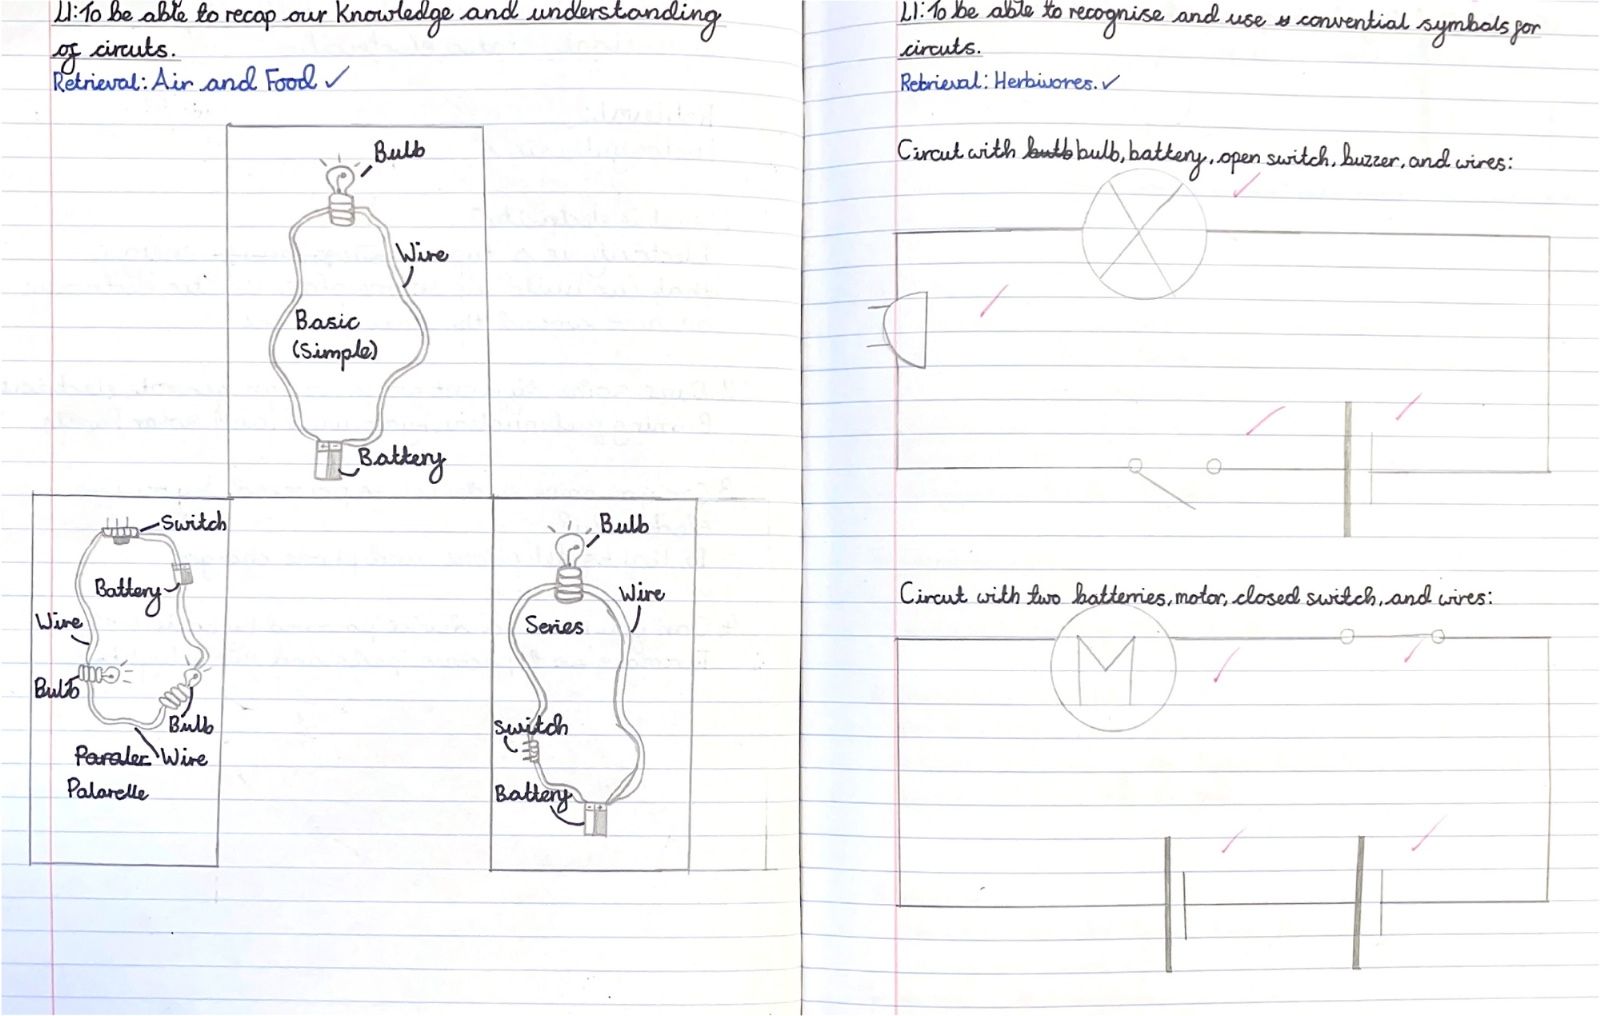 LI: To be able to recap our knowledge and understanding
of circuts.
Retrieval: Air and Food ✓
Bulb
Wire
Basic
(Simple)
Battery
Switch
Battery
Wire
Bulb
Bulb
Paraler Wire
Palarelle
Bulb
Wire
Series
Switch
Battery
LI: To be able to recognise and use s convential symbols for
circuts.
Retrieval: Herbivores. ✓
Circut with butb bulb, battery, open switch, buzzer, and wires:
Circut with two batterries, motor, closed switch, and wires:
M